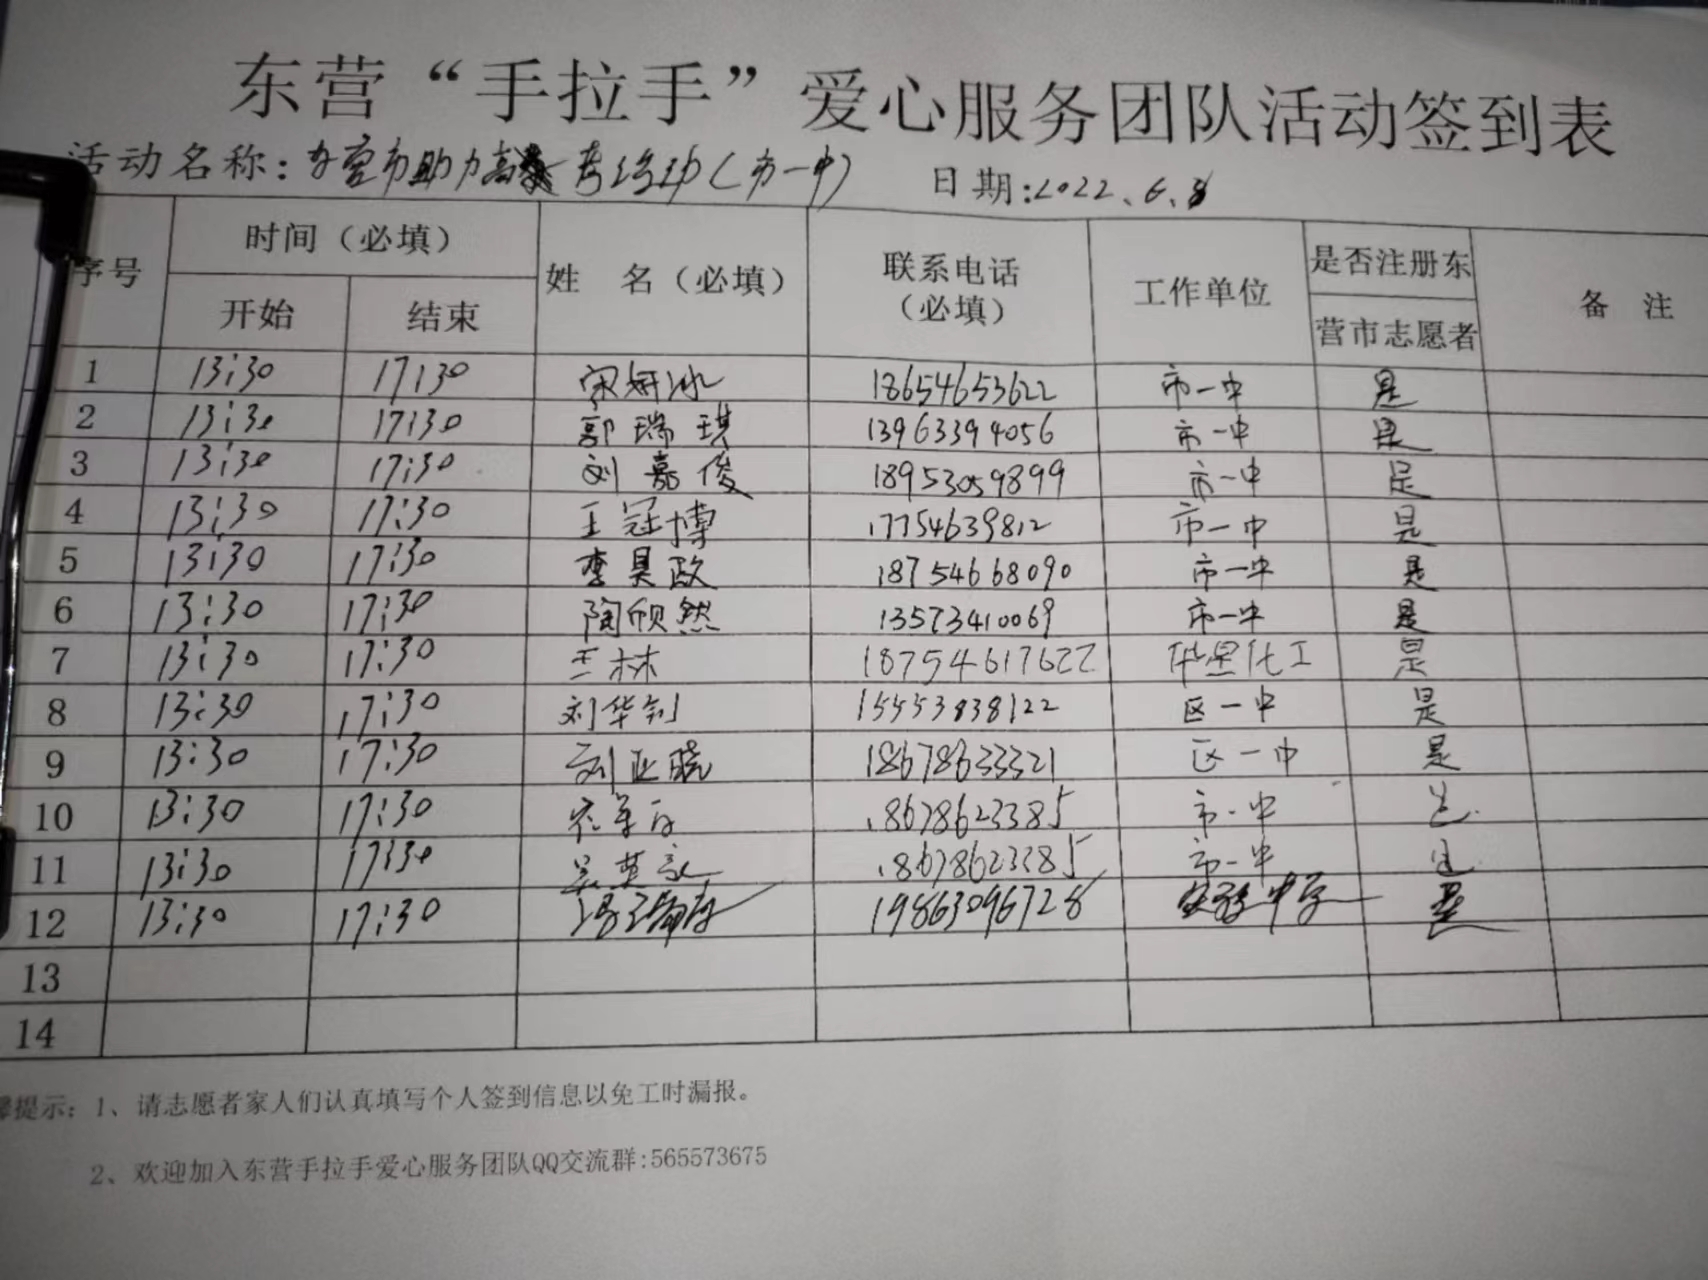 东营“手拉手”爱心服务团队活动签到表
活动名称：东营市助力高考活动（市一中） 日期:2022.6.8
序号 时间（必填） 姓 名（必填） 联系电话（必填） 工作单位 是否注册东营市志愿者 备 注
开始 结束
1 13:30 17:30 宋妍冰 18654653622 市一中 是
2 13:30 17:30 郭瑞琪 13963394056 市一中 是
3 13:30 17:30 刘嘉俊 18953059899 市一中 是
4 13:30 17:30 王冠博 17754639812 市一中 是
5 13:30 17:30 李昊政 18754668090 市一中 是
6 13:30 17:30 陶欣然 13573410069 市一中 是
7 13:30 17:30 王林 18754617622 华星化工 是
8 13:30 17:30 刘华钊 15553838122 区一中 是
9 13:30 17:30 刘亚晓 18678633321 区一中 是
10 13:30 17:30 18678623385 市一中 是
11 13:30 17:30 18678623385 市一中 是
12 13:30 17:30 19863096728 实验中学 是
13
14
提示：1、请志愿者家人们认真填写个人签到信息以免工时漏报。
2、欢迎加入东营手拉手爱心服务团队QQ交流群:565573675